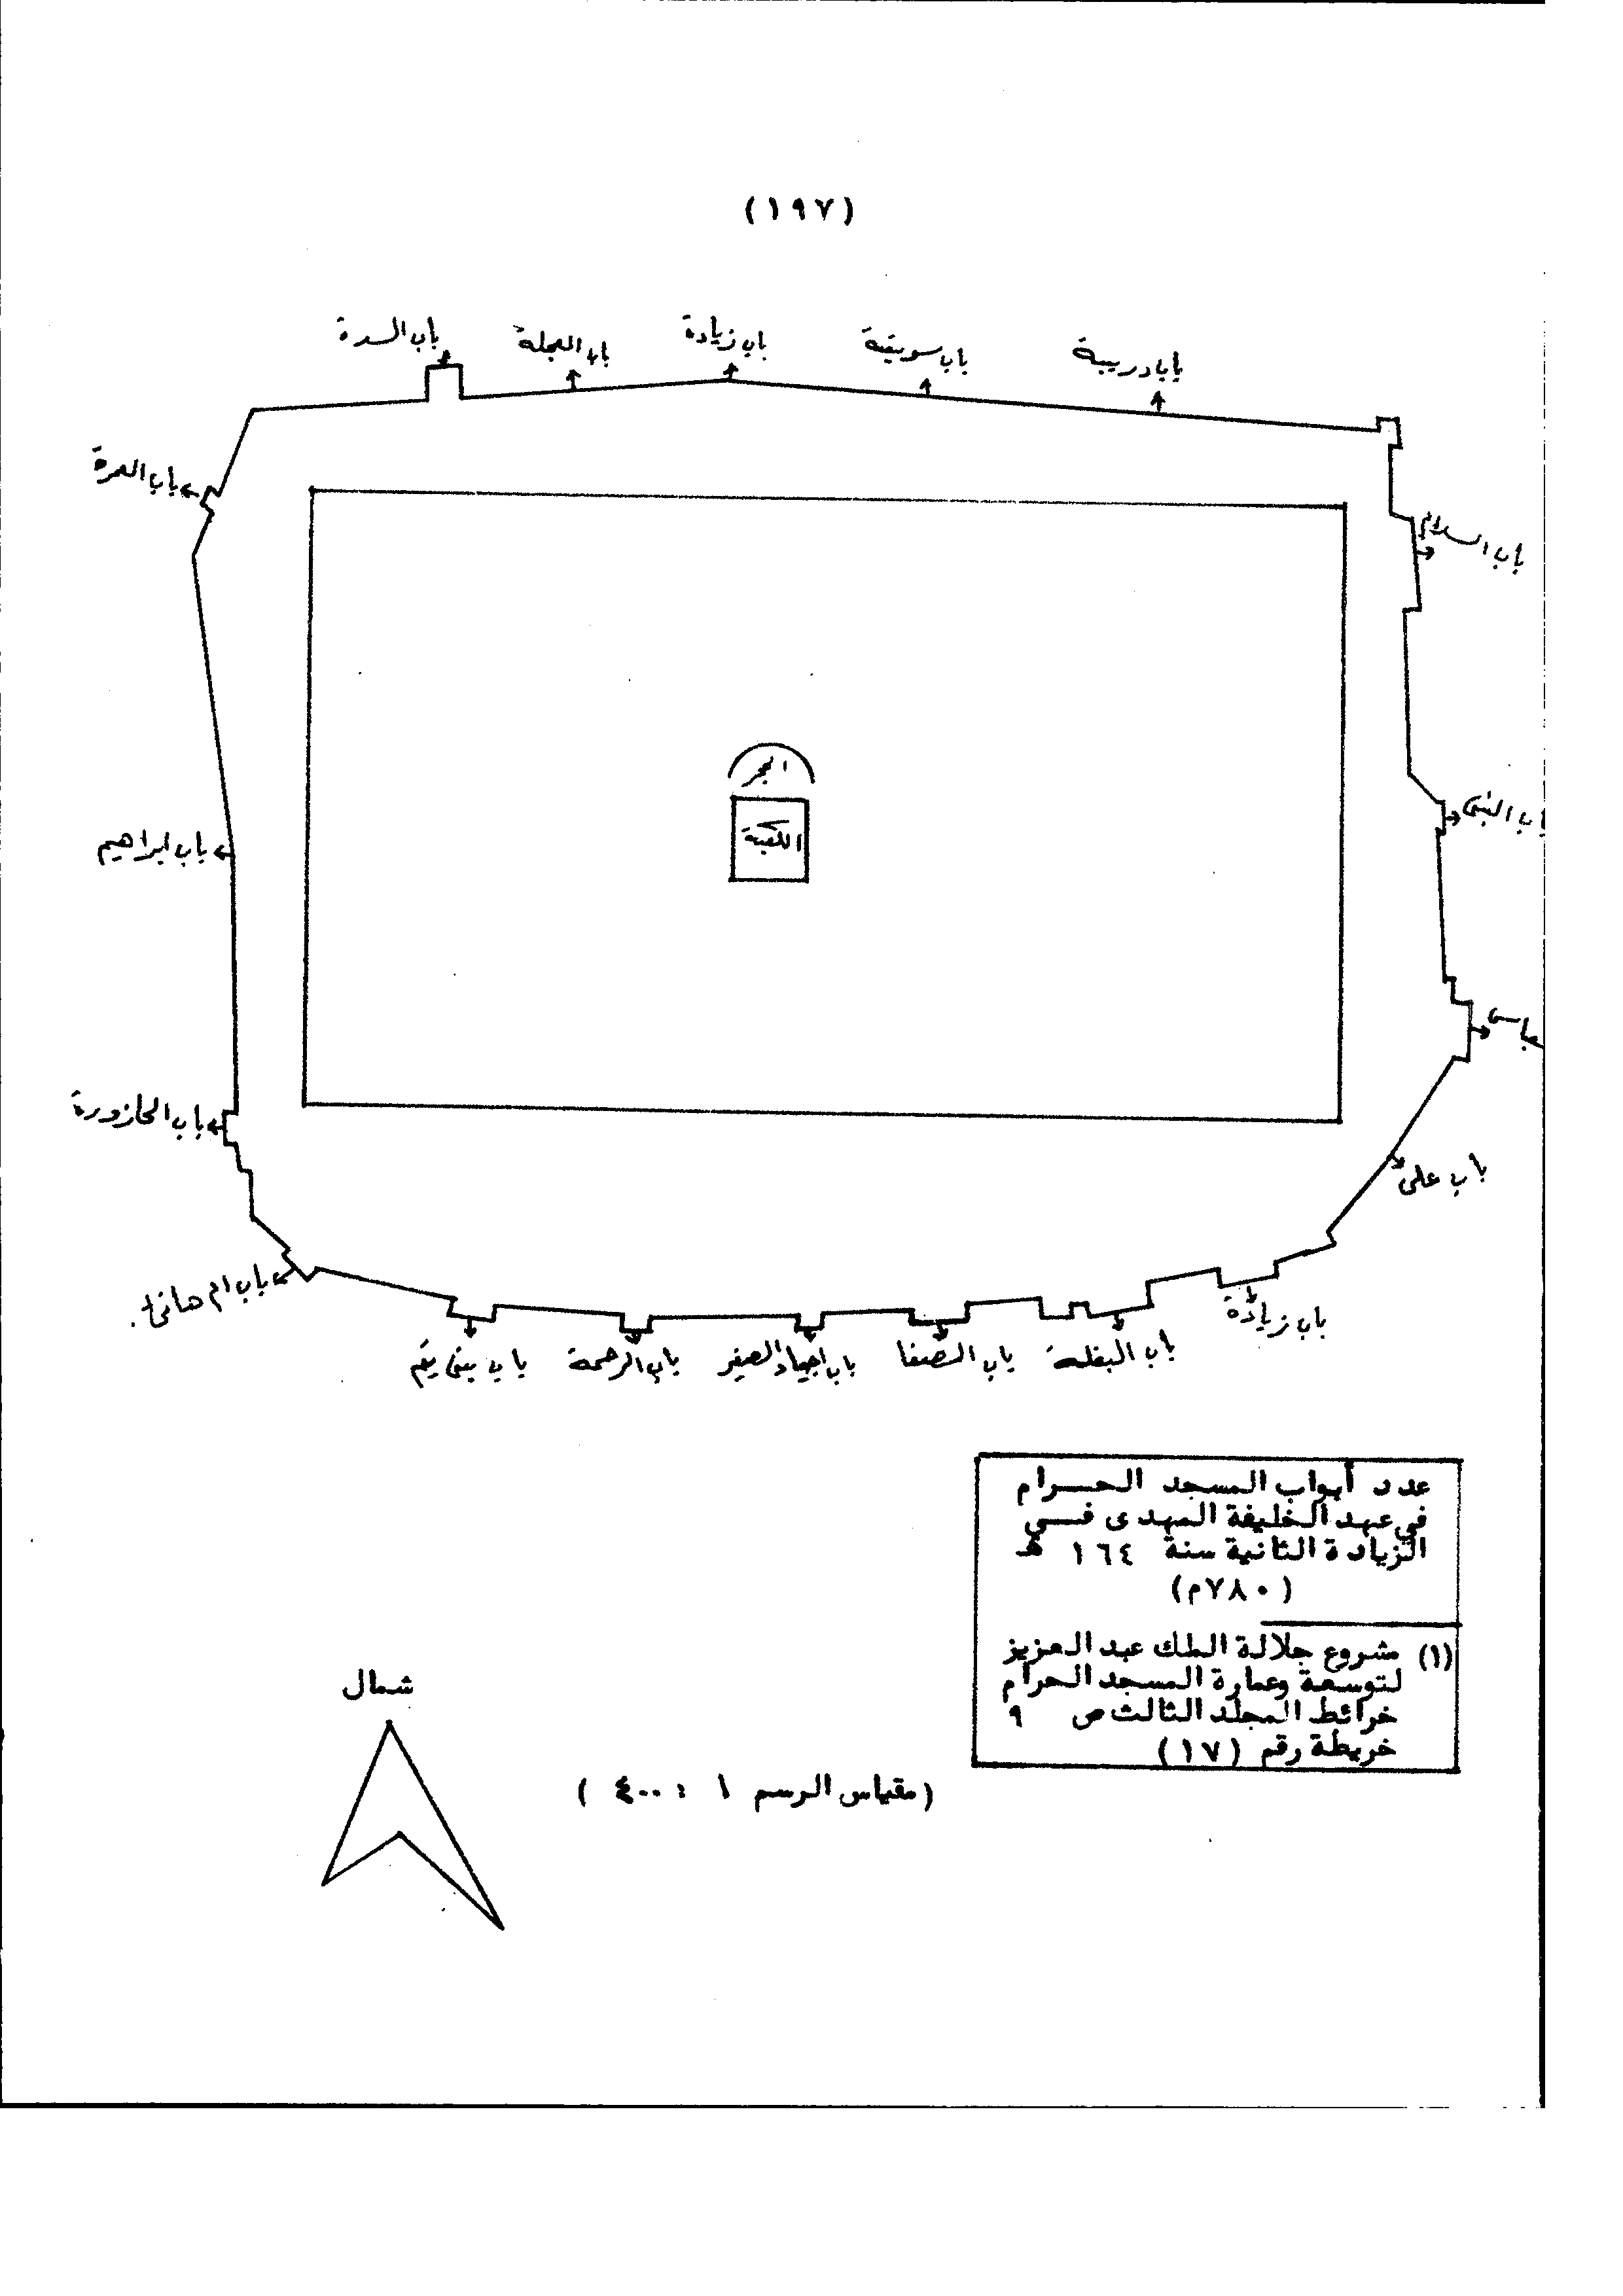 (١٩٧)
باب السدة
باب العجلة
باب زيادة
باب سويقة
باب دريبة
باب العمرة
باب السلام
الحجر
الكعبة
باب النبى
باب ابراهيم
باب الحازورة
باب على
باب ام هانئ
باب زيادة
باب بنى تيم
باب الرحمة
باب اجياد الصغير
باب الصفا
باب البغلة
عدد أبواب المسجد الحرام
في عهد الخليفة المهدى في
الزيادة الثانية سنة ١٦٤ هـ
(٧٨٠م)
(١) مشروع جلالة الملك عبد العزيز
لتوسعة وعمارة المسجد الحرام
خرائط المجلد الثالث ص ٩
خريطة رقم (١٧)
شمال
(مقياس الرسم ١ : ٤٠٠)